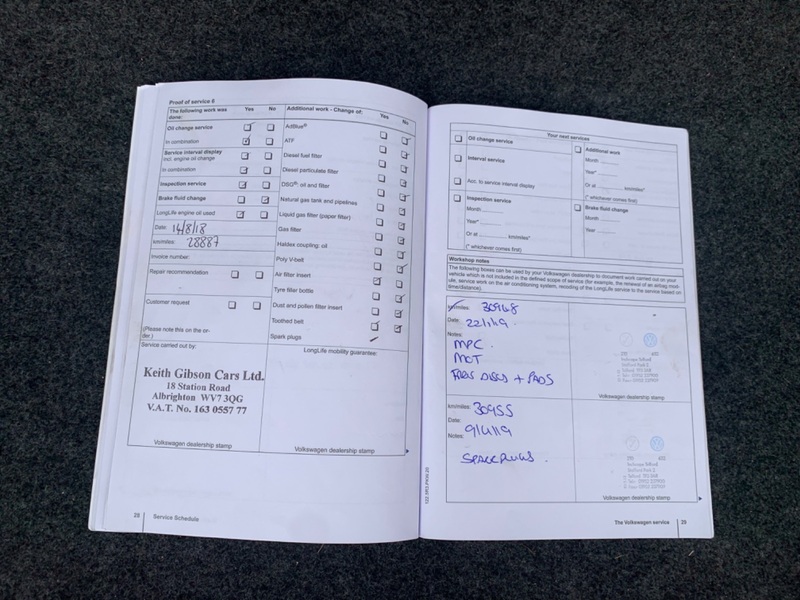 Proof of service 6
The following work was done: Yes No
Oil change service
In combination
Service interval display
incl. engine oil change
In combination
Inspection service
Brake fluid change
LongLife engine oil used
Date: 14/8/18
km/miles: 28887
Invoice number:
Repair recommendation
Customer request
(Please note this on the order.)
Service carried out by:
Keith Gibson Cars Ltd.
18 Station Road
Albrighton WV7 3QG
V.A.T. No. 163 0557 77
Volkswagen dealership stamp
Additional work - Change of: Yes No
AdBlue®
ATF
Diesel fuel filter
Diesel particulate filter
DSG®: oil and filter
Natural gas tank and pipelines
Liquid gas filter (paper filter)
Gas filter
Haldex coupling: oil
Poly V-belt
Air filter insert
Tyre filler bottle
Dust and pollen filter insert
Toothed belt
Spark plugs
LongLife mobility guarantee:
Volkswagen dealership stamp
28 Service Schedule
Your next services
Oil change service
Interval service
Acc. to service interval display
Inspection service
Month
Year*
Or at km/miles*
(* whichever comes first)
Additional work
Month
Year*
Or at km/miles*
(* whichever comes first)
Brake fluid change
Month
Year
Workshop notes
The following boxes can be used by your Volkswagen dealership to document work carried out on your
vehicle which is not included in the defined scope of service (for example, the renewal of an airbag module, service work on the air conditioning system, recoding of the LongLife service to the service based on
time/distance).
km/miles: 30968
Date: 22/1/19
Notes:
MPC.
MOT
DISCS + PADS
Volkswagen dealership stamp
km/miles: 30955
Date:
9/4/19
Notes:
SPARKPLUGS.
Volkswagen dealership stamp
The Volkswagen service 29